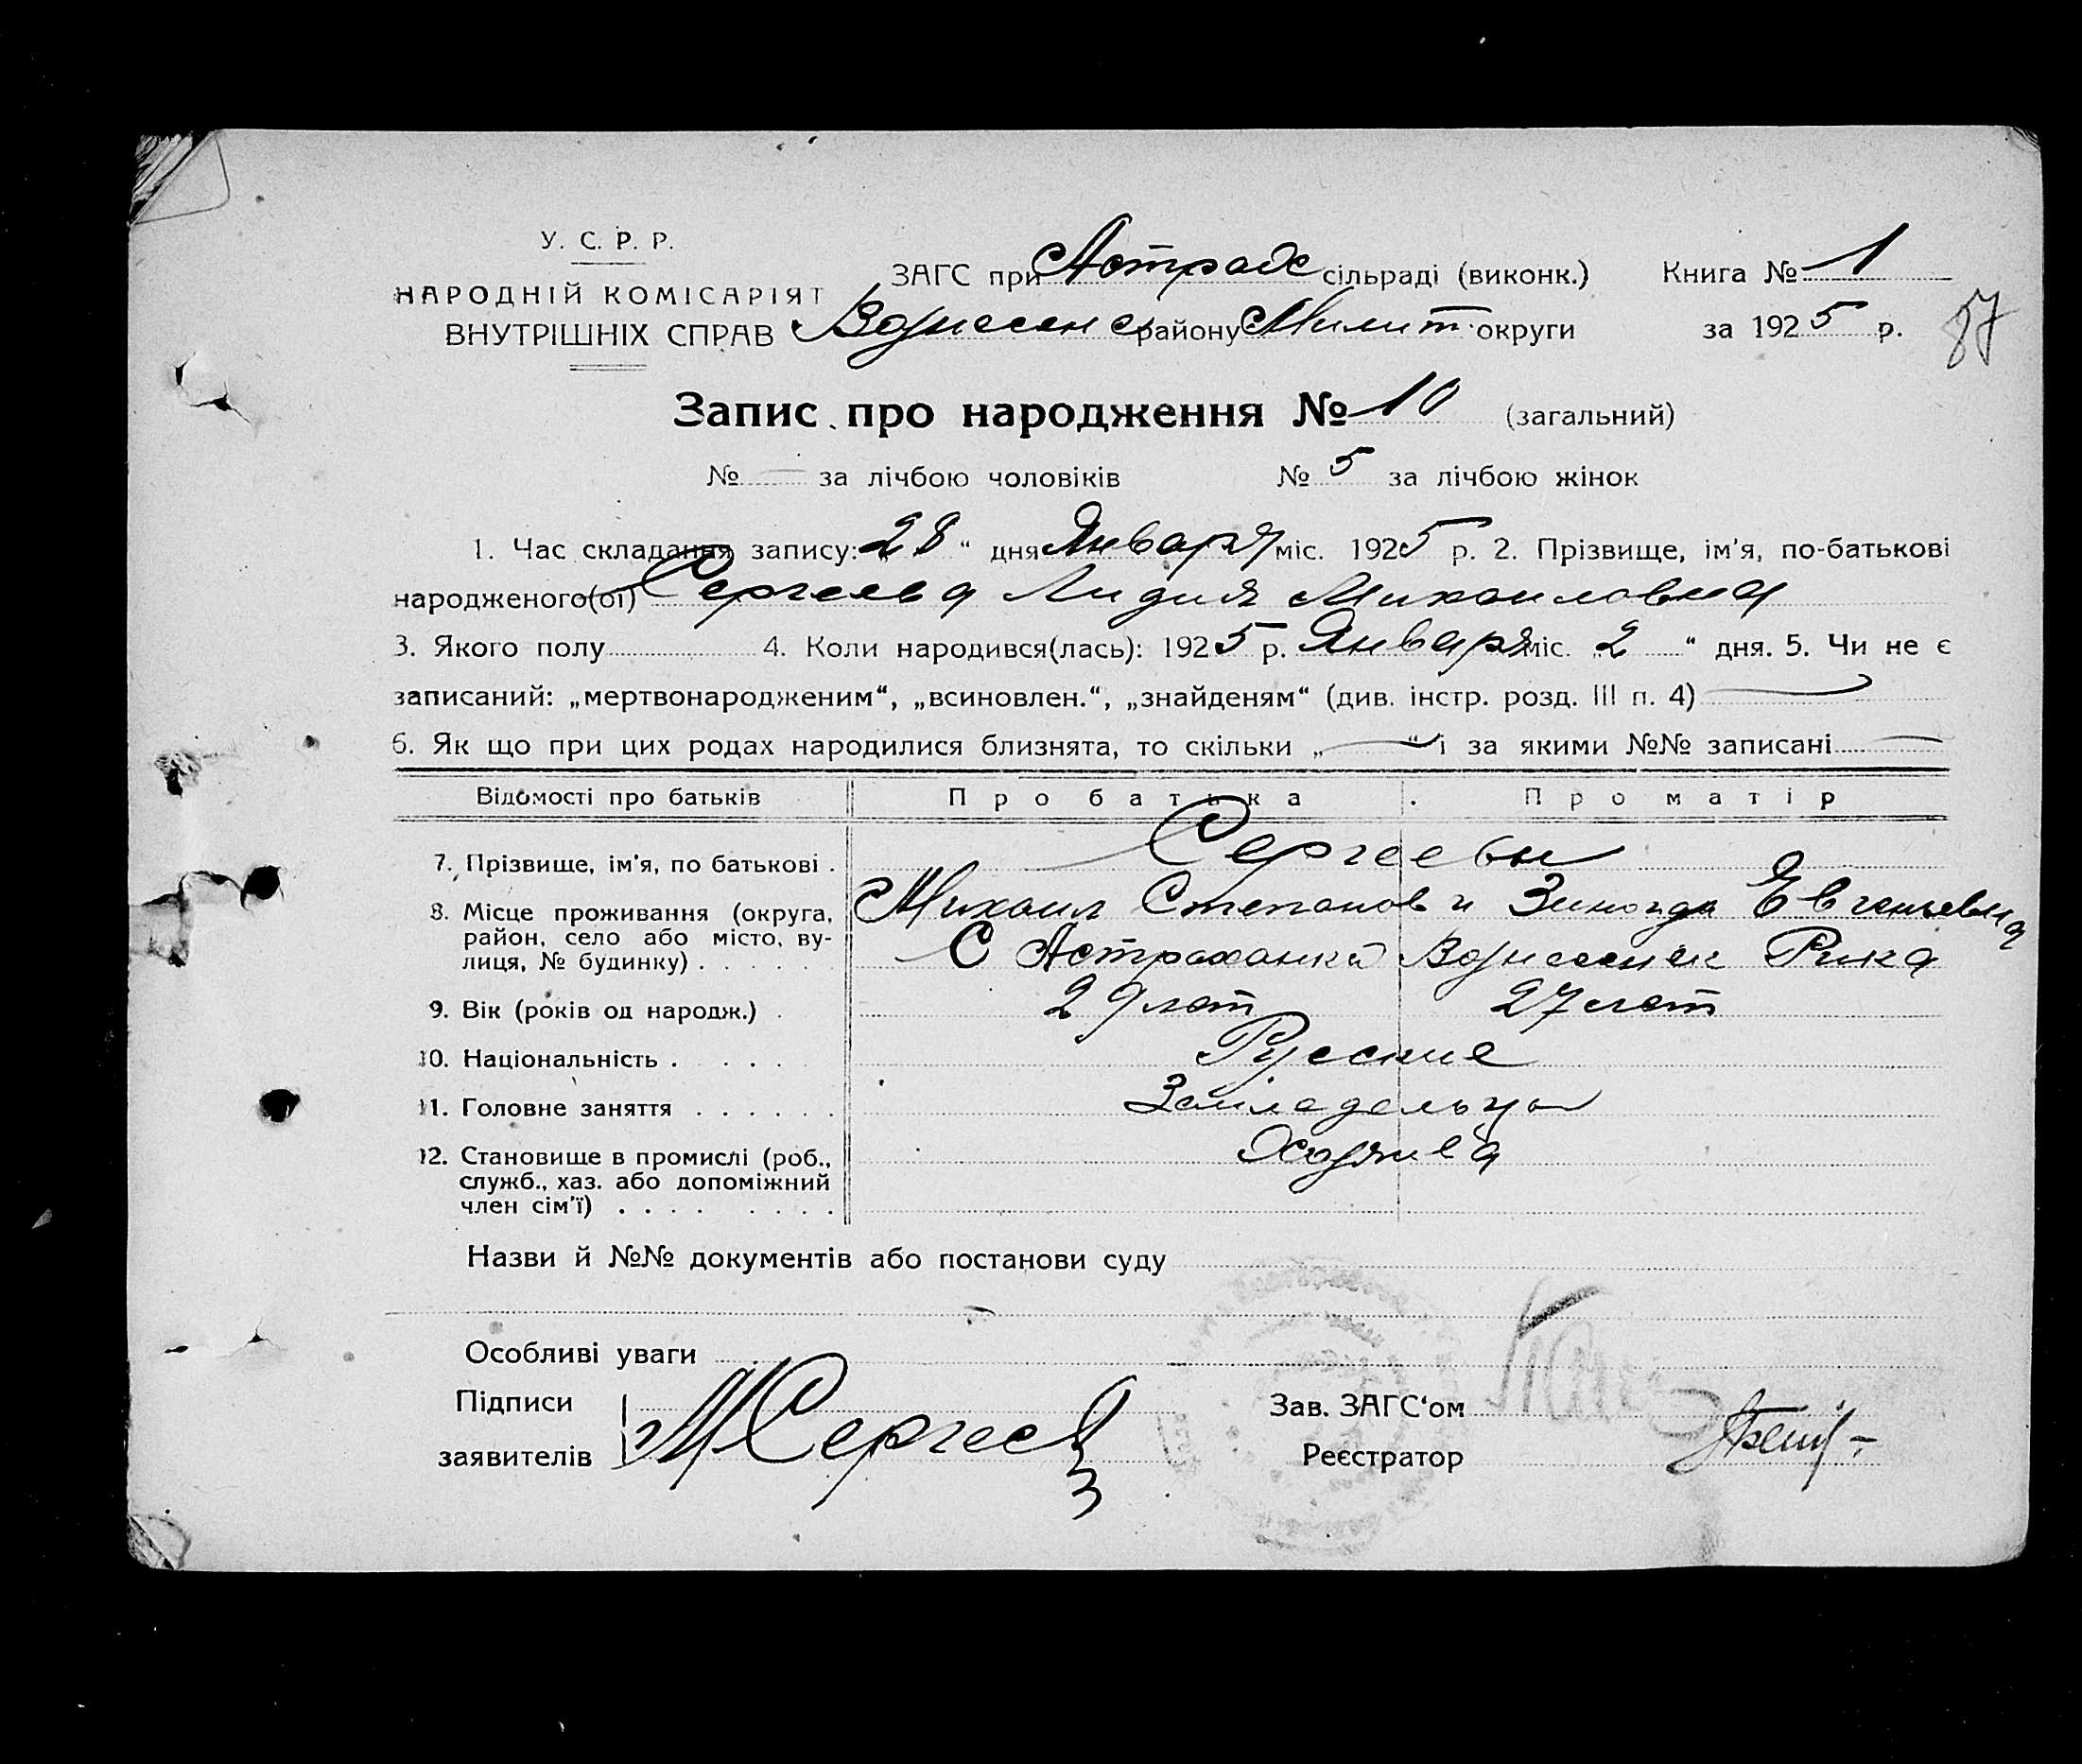 У. С. Р. Р.
НАРОДНІЙ КОМІСАРІЯТ
ВНУТРІШНІХ СПРАВ
ЗАГС при Астрах сільраді (виконк.) Книга № 1
Вознесенс району Мелит. округи за 1925 р.
87
Запис про народження № 10 (загальний)
№ — за лічбою чоловіків № 5 за лічбою жінок
1. Час складання запису: „28“ дня Января міс. 1925 р. 2. Прізвище, ім'я, по-батькові
народженого(ої) Сергеева Лидия Михаиловна
3. Якого полу 4. Коли народився(лась): 1925 р. Января міс. „2“ дня. 5. Чи не є
записаний: „мертвонародженим“, „всиновлен.“, „знайденям“ (див. інстр. розд. III п. 4) —
6. Як що при цих родах народилися близнята, то скільки „—“ і за якими №№ записані —
Відомості про батьків Про батька Про матір
7. Прізвище, ім'я, по батькові . Сергеевы
Михаил Степанов и Зинаида Евгеньевна
8. Місце проживання (округа, район, село або місто, вулиця, № будинку) . . . . . . С Астраханка Вознесенск Рика
9. Вік (років од народж.) . 29 лет 27 лет
10. Національність . . . . . Русские
11. Головне заняття . . . . . . Земледельцы
12. Становище в промислі (роб., служб., хаз. або допоміжний член сім'ї) . . . . . . . . Хозяева
Назви й №№ документів або постанови суду
Особливі уваги
Підписи
заявителів МСергеев
Зав. ЗАГС‘ом
Реєстратор